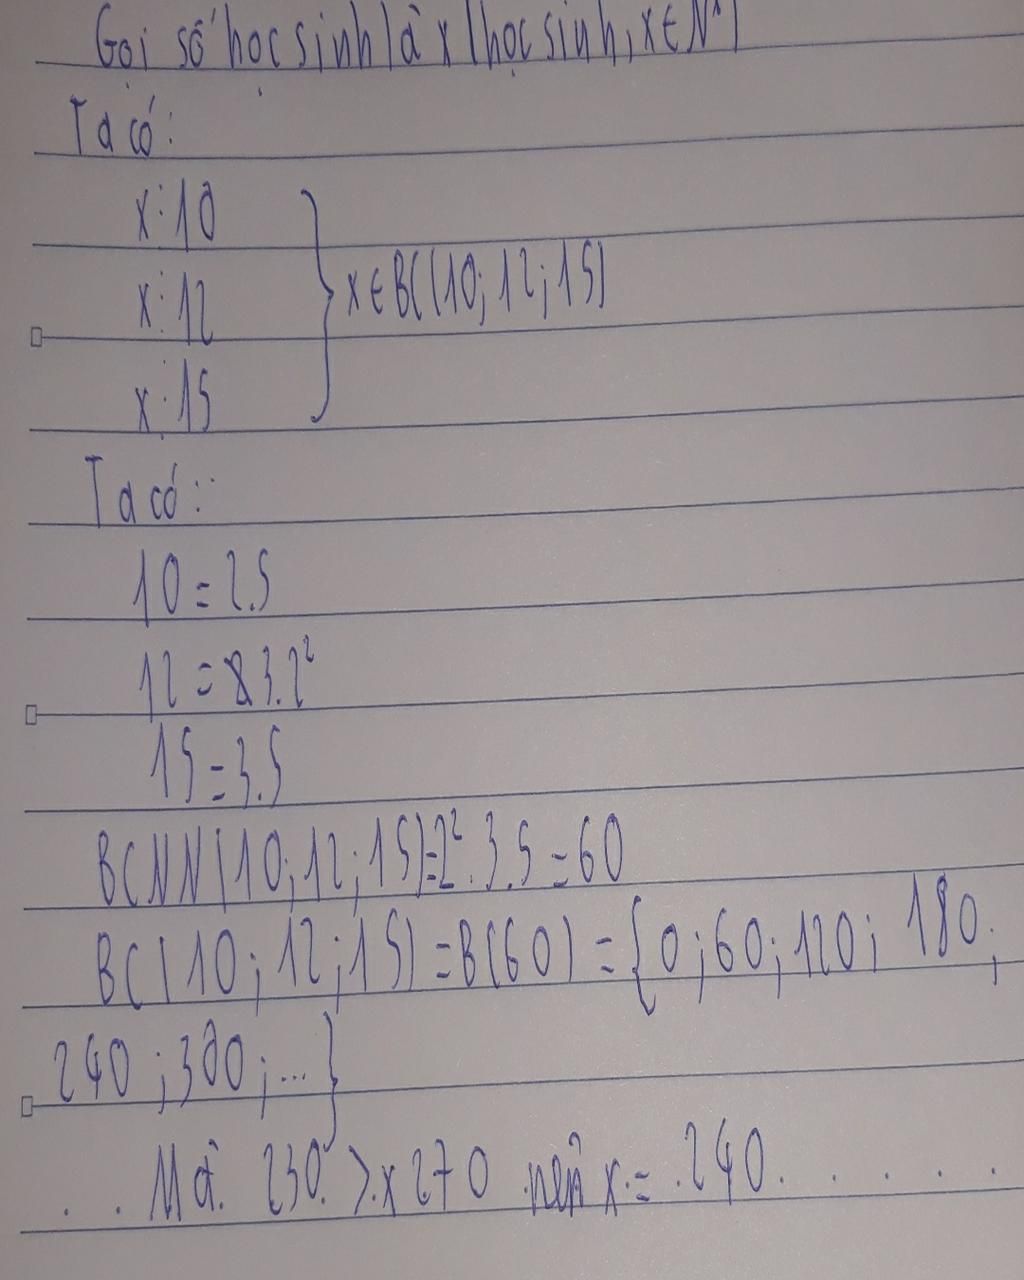 Gọi số học sinh là x (học sinh, x ∈ N*)
Ta có:
x ⋮ 10
x ⋮ 12
x ⋮ 15
} x ∈ BC(10; 12; 15)
Ta có:
10 = 2.5
12 = 3.2²
15 = 3.5
BCNN(10; 12; 15) = 2².3.5 = 60
BC(10; 12; 15) = B(60) = {0; 60; 120; 180;
240; 300; ...}
Mà 230 > x 270 nên x = 240